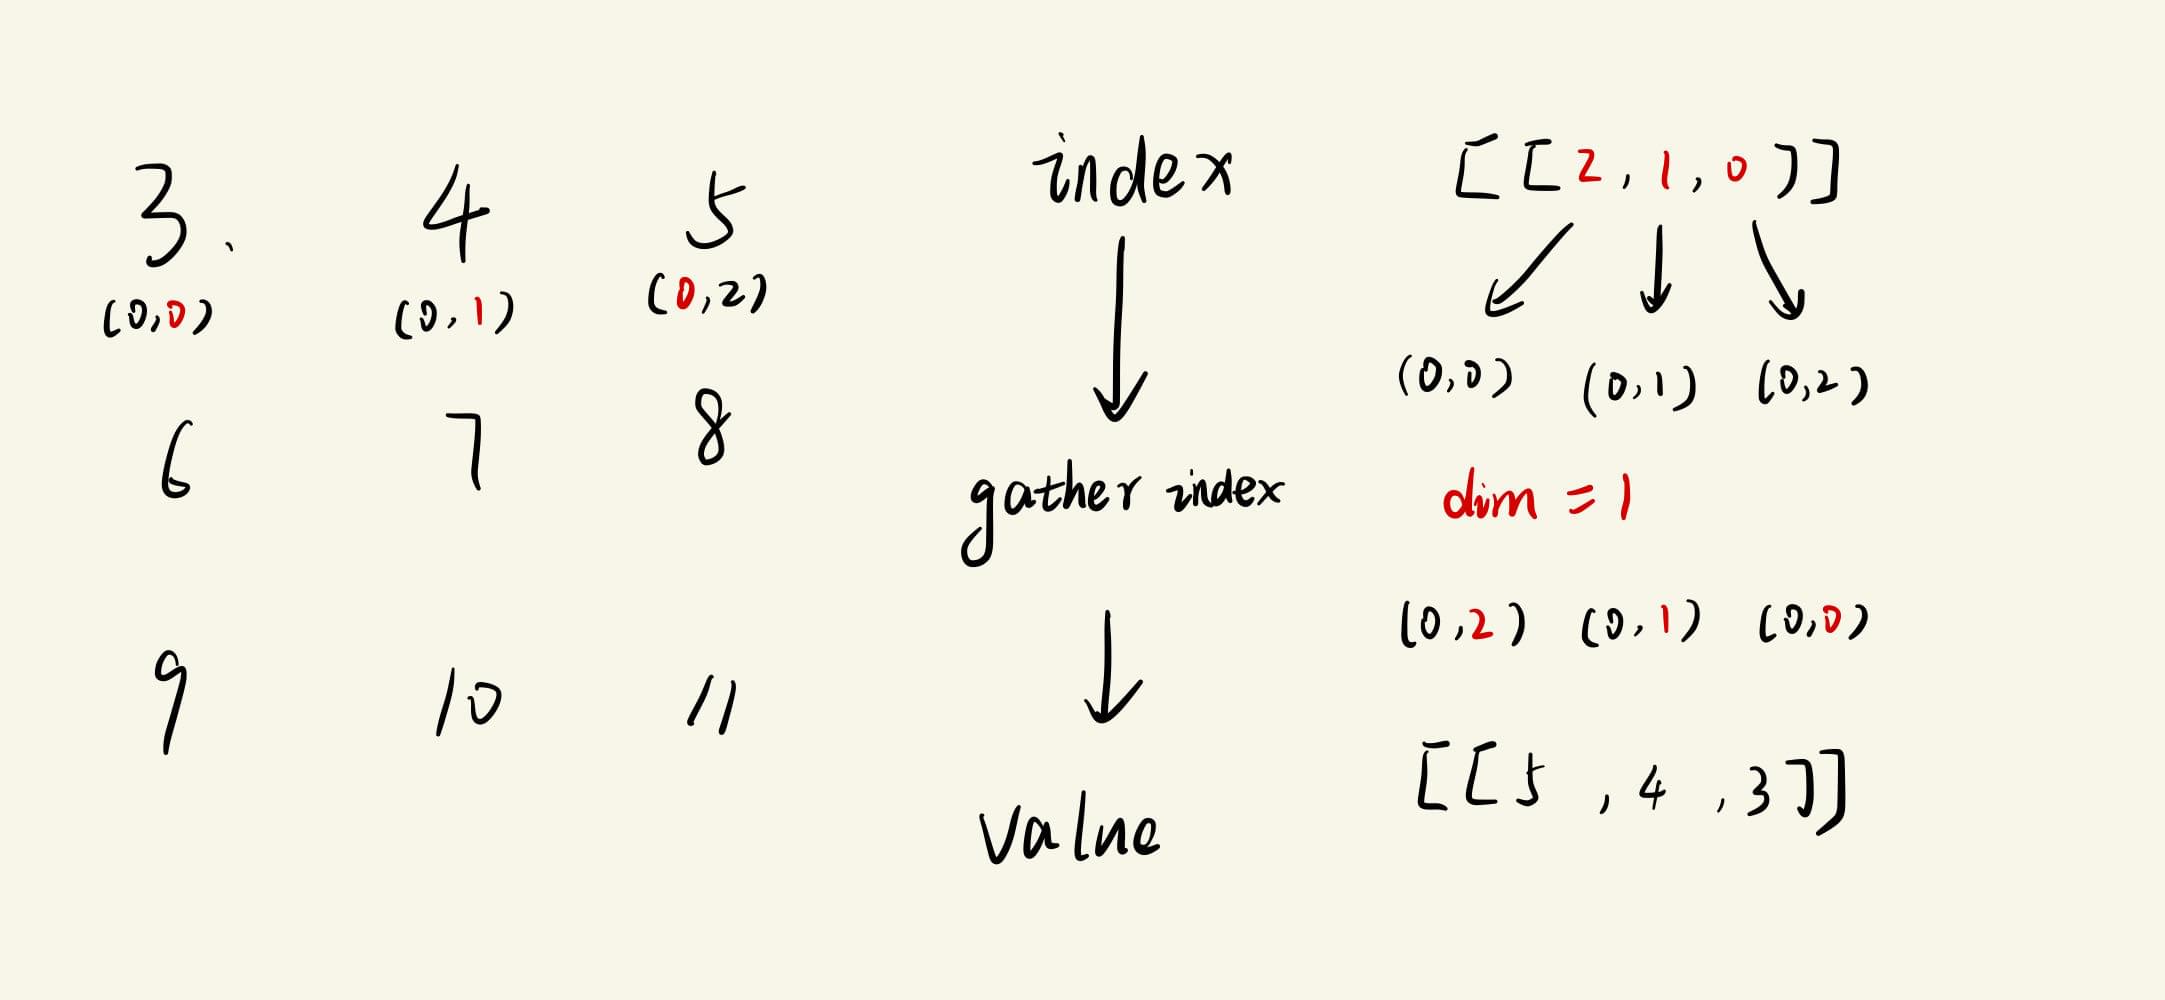 3. 4 5
(0,0) (0,1) (0,2)
6 7 8
9 10 11
index
gather index
value
[[2,1,0)]]
(0,0) (0,1) (0,2)
dim = 1
(0,2) (0,1) (0,0)
[[5,4,3]]